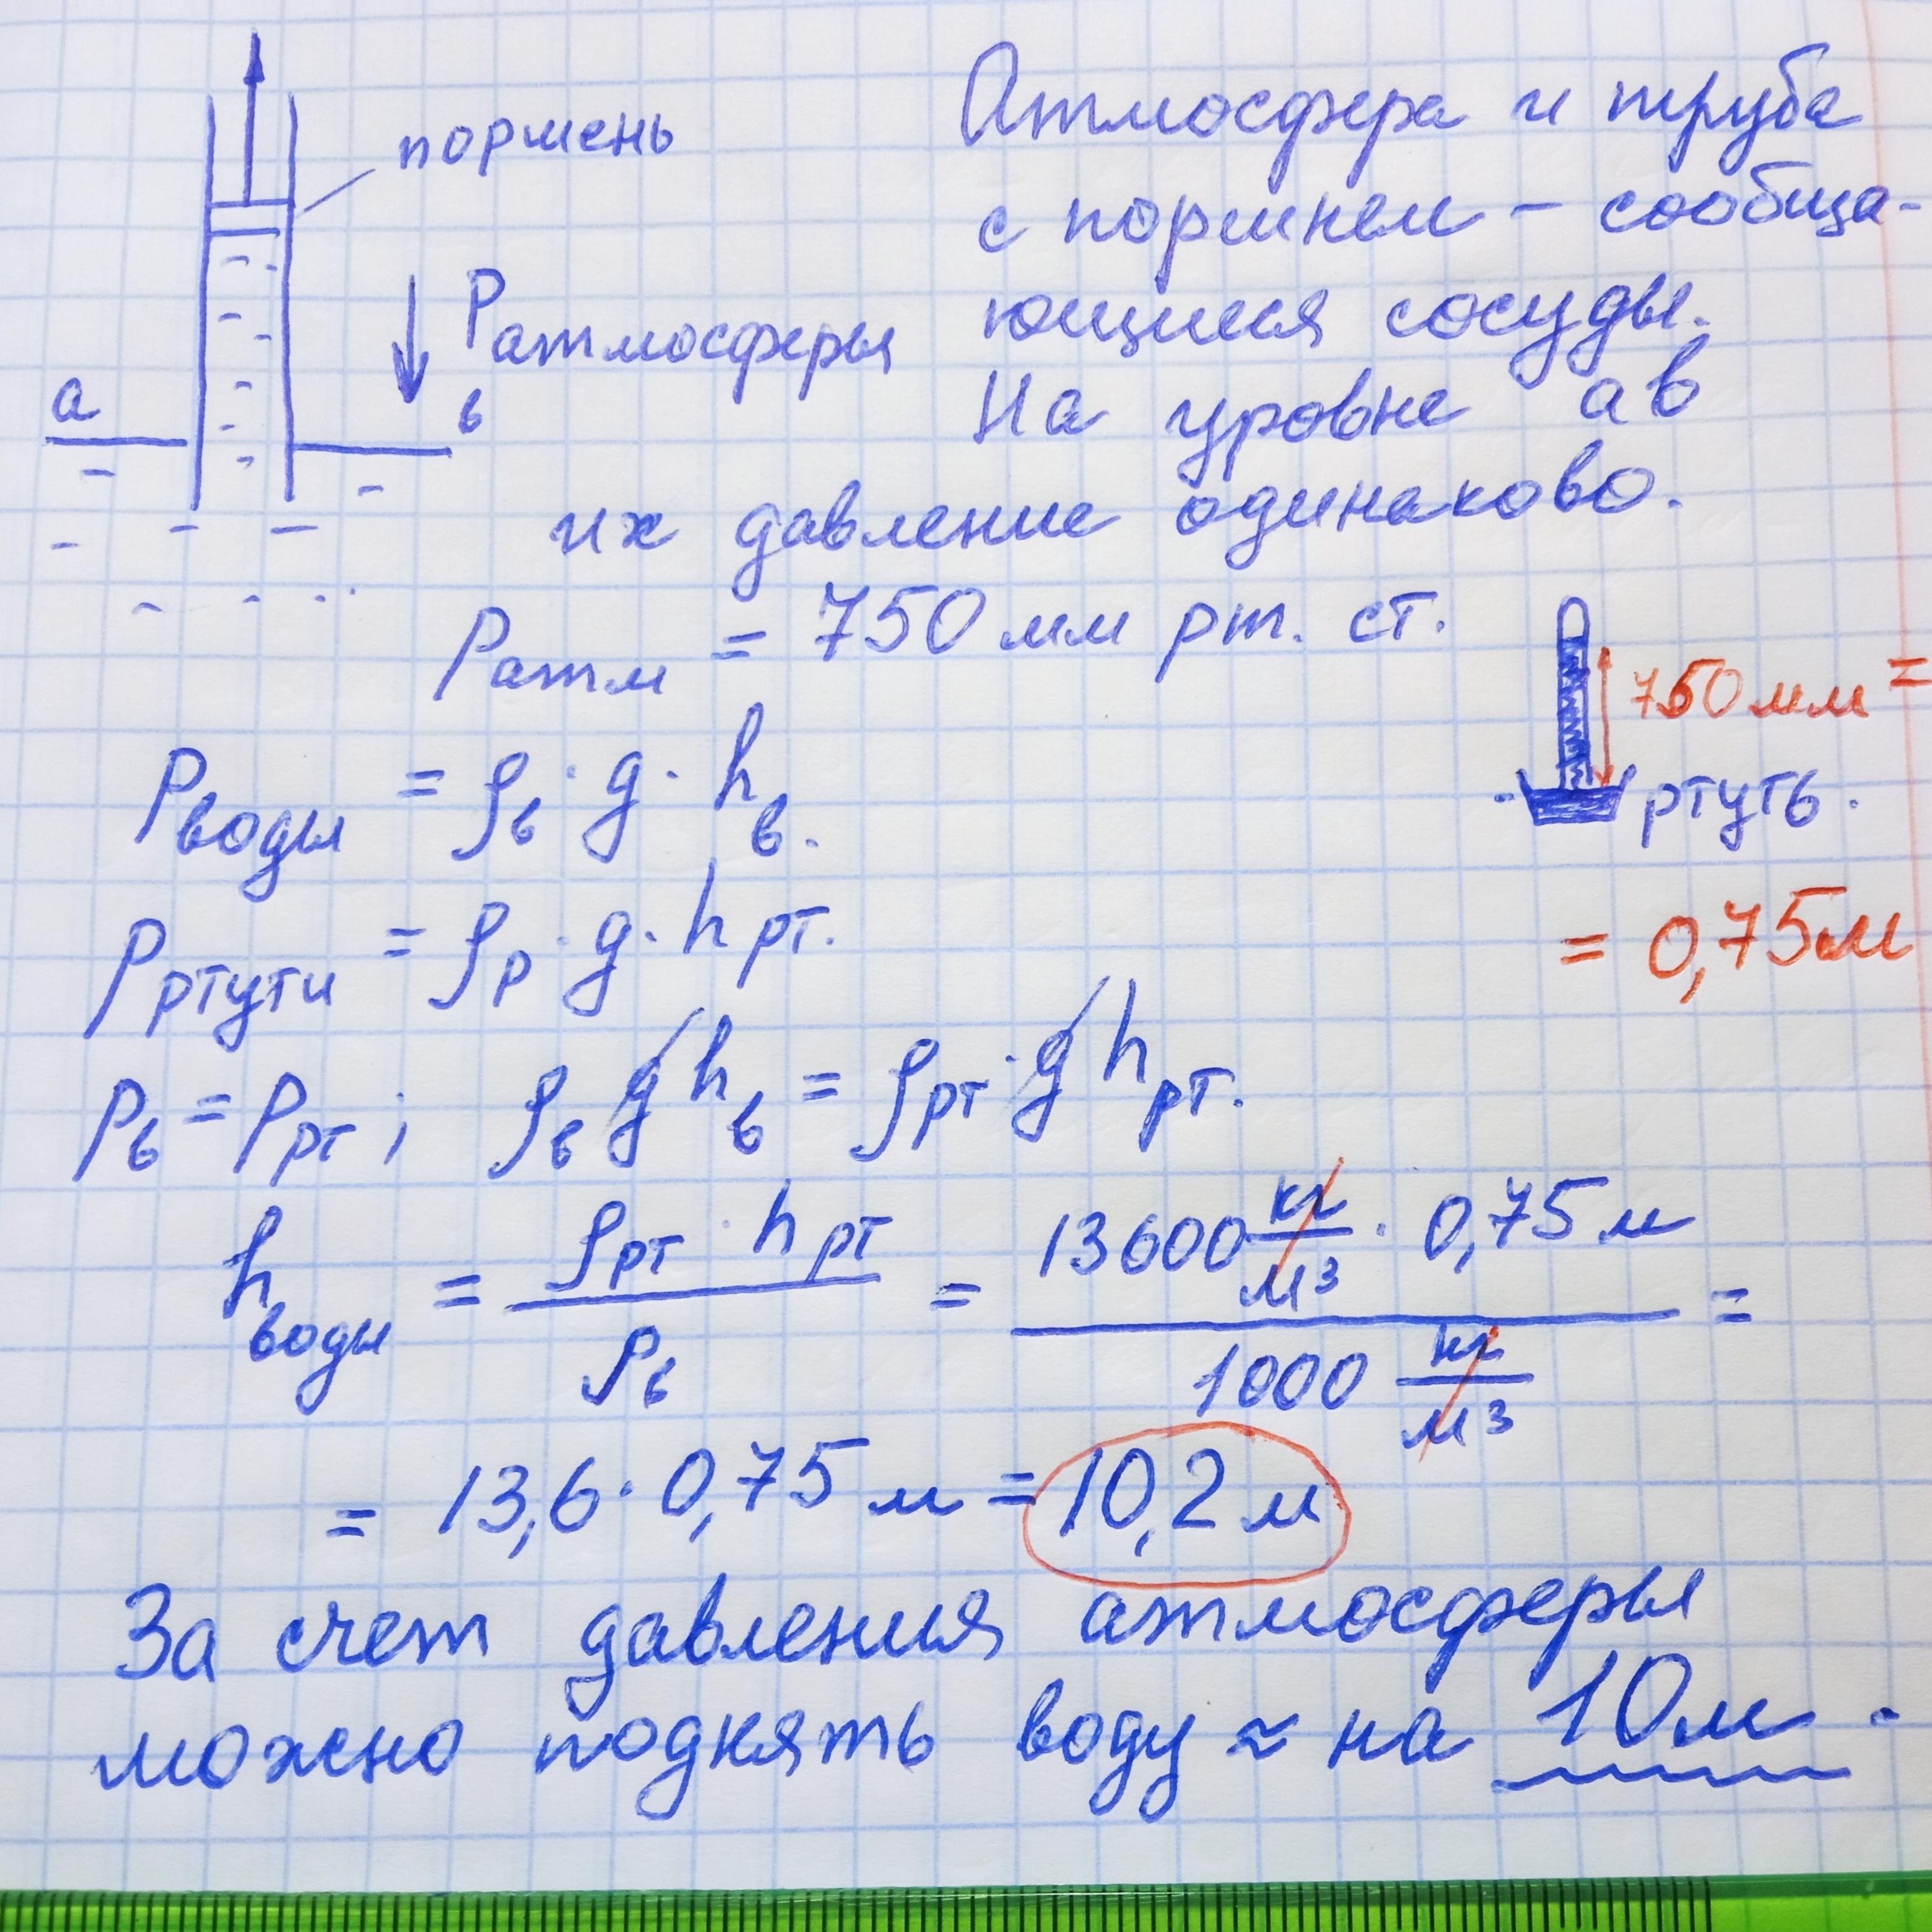 поршень
Атмосфера и труба
с поршнем - сообща-
ющиеся сосуды.
Pатмосферы
а
в
На уровне ав
их давление одинаково.
Pатм = 750 мм рт. ст.
750 мм =
ртуть.
= 0,75м
Pводы = ρв · g · hв.
Pртути = ρр · g · hрт.
Pв = Pрт ; ρв g hв = ρрт · g hрт.
hводы = ρрт · hрт / ρв = 13600 кг/м3 · 0,75 м / 1000 кг/м3 =
= 13,6 · 0,75 м = 10,2 м
За счет давления атмосферы
можно поднять воду ≈ на 10м.